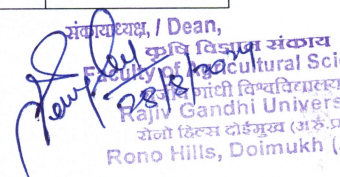 संकायाध्यक्ष, / Dean,
कृषि विज्ञान संकाय
Faculty of Agricultural Sci
राजीव गांधी विश्वविद्यालय
Rajiv Gandhi Univers
रोनो हिल्स दोईमुख (अरु.प्र
Rono Hills, Doimukh (
28/8/2024